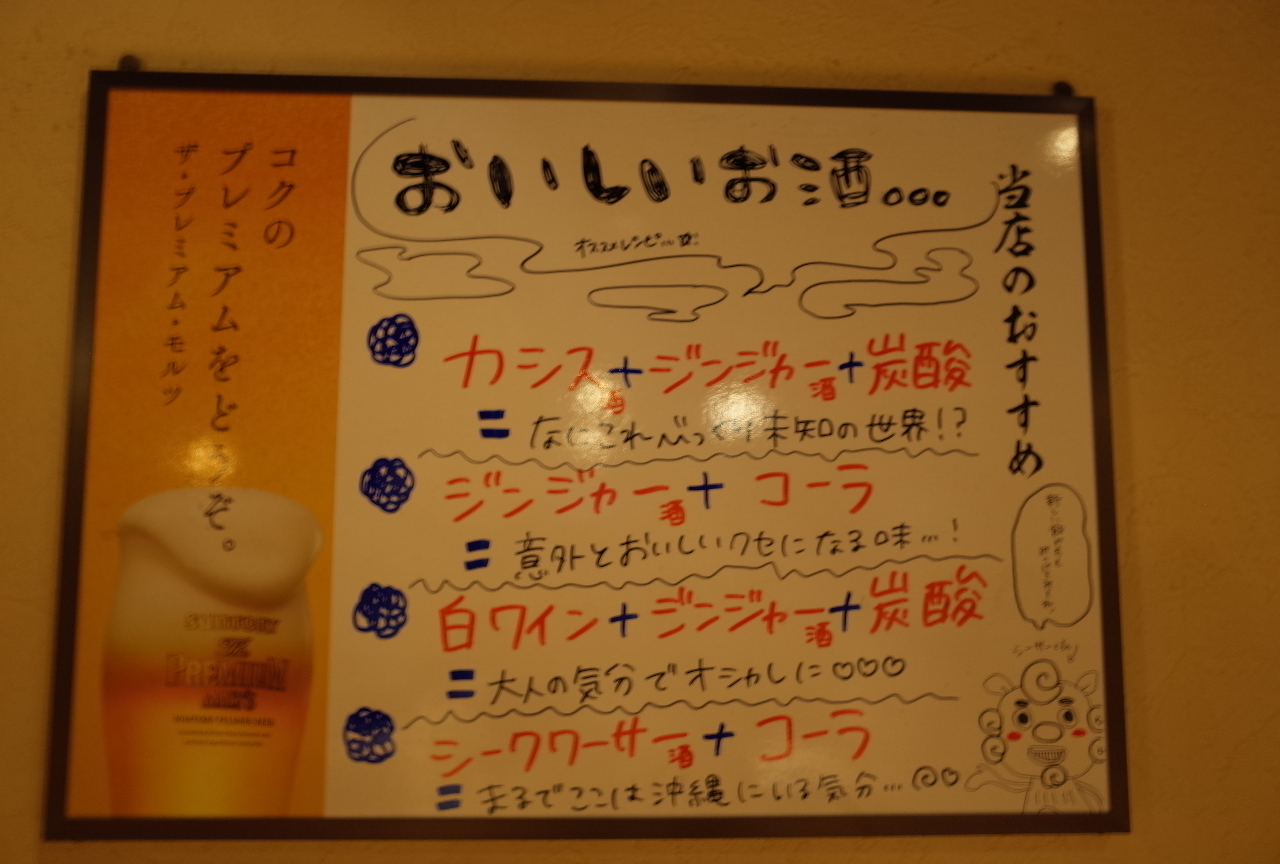 コクの
プレミアムをどうぞ。
ザ・プレミアム・モルツ
SUNTORY
THE
PREMIUM
MALT'S
おいしいお酒...
当店のおすすめ
カシス酒+ジンジャー酒+炭酸
=なにこれびっくり未知の世界!?
ジンジャー酒+コーラ
=意外とおいしいクセになる味...!
白ワイン+ジンジャー酒+炭酸
=大人の気分でオシャレに♡♡♡
シークワーサー酒+コーラ
=まるでここは沖縄にいる気分...